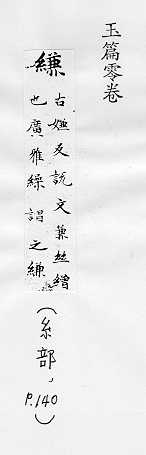 玉篇零卷
縑 古嫌反說文兼絲繒
也廣雅繰謂之縑
(糸部, P.140)